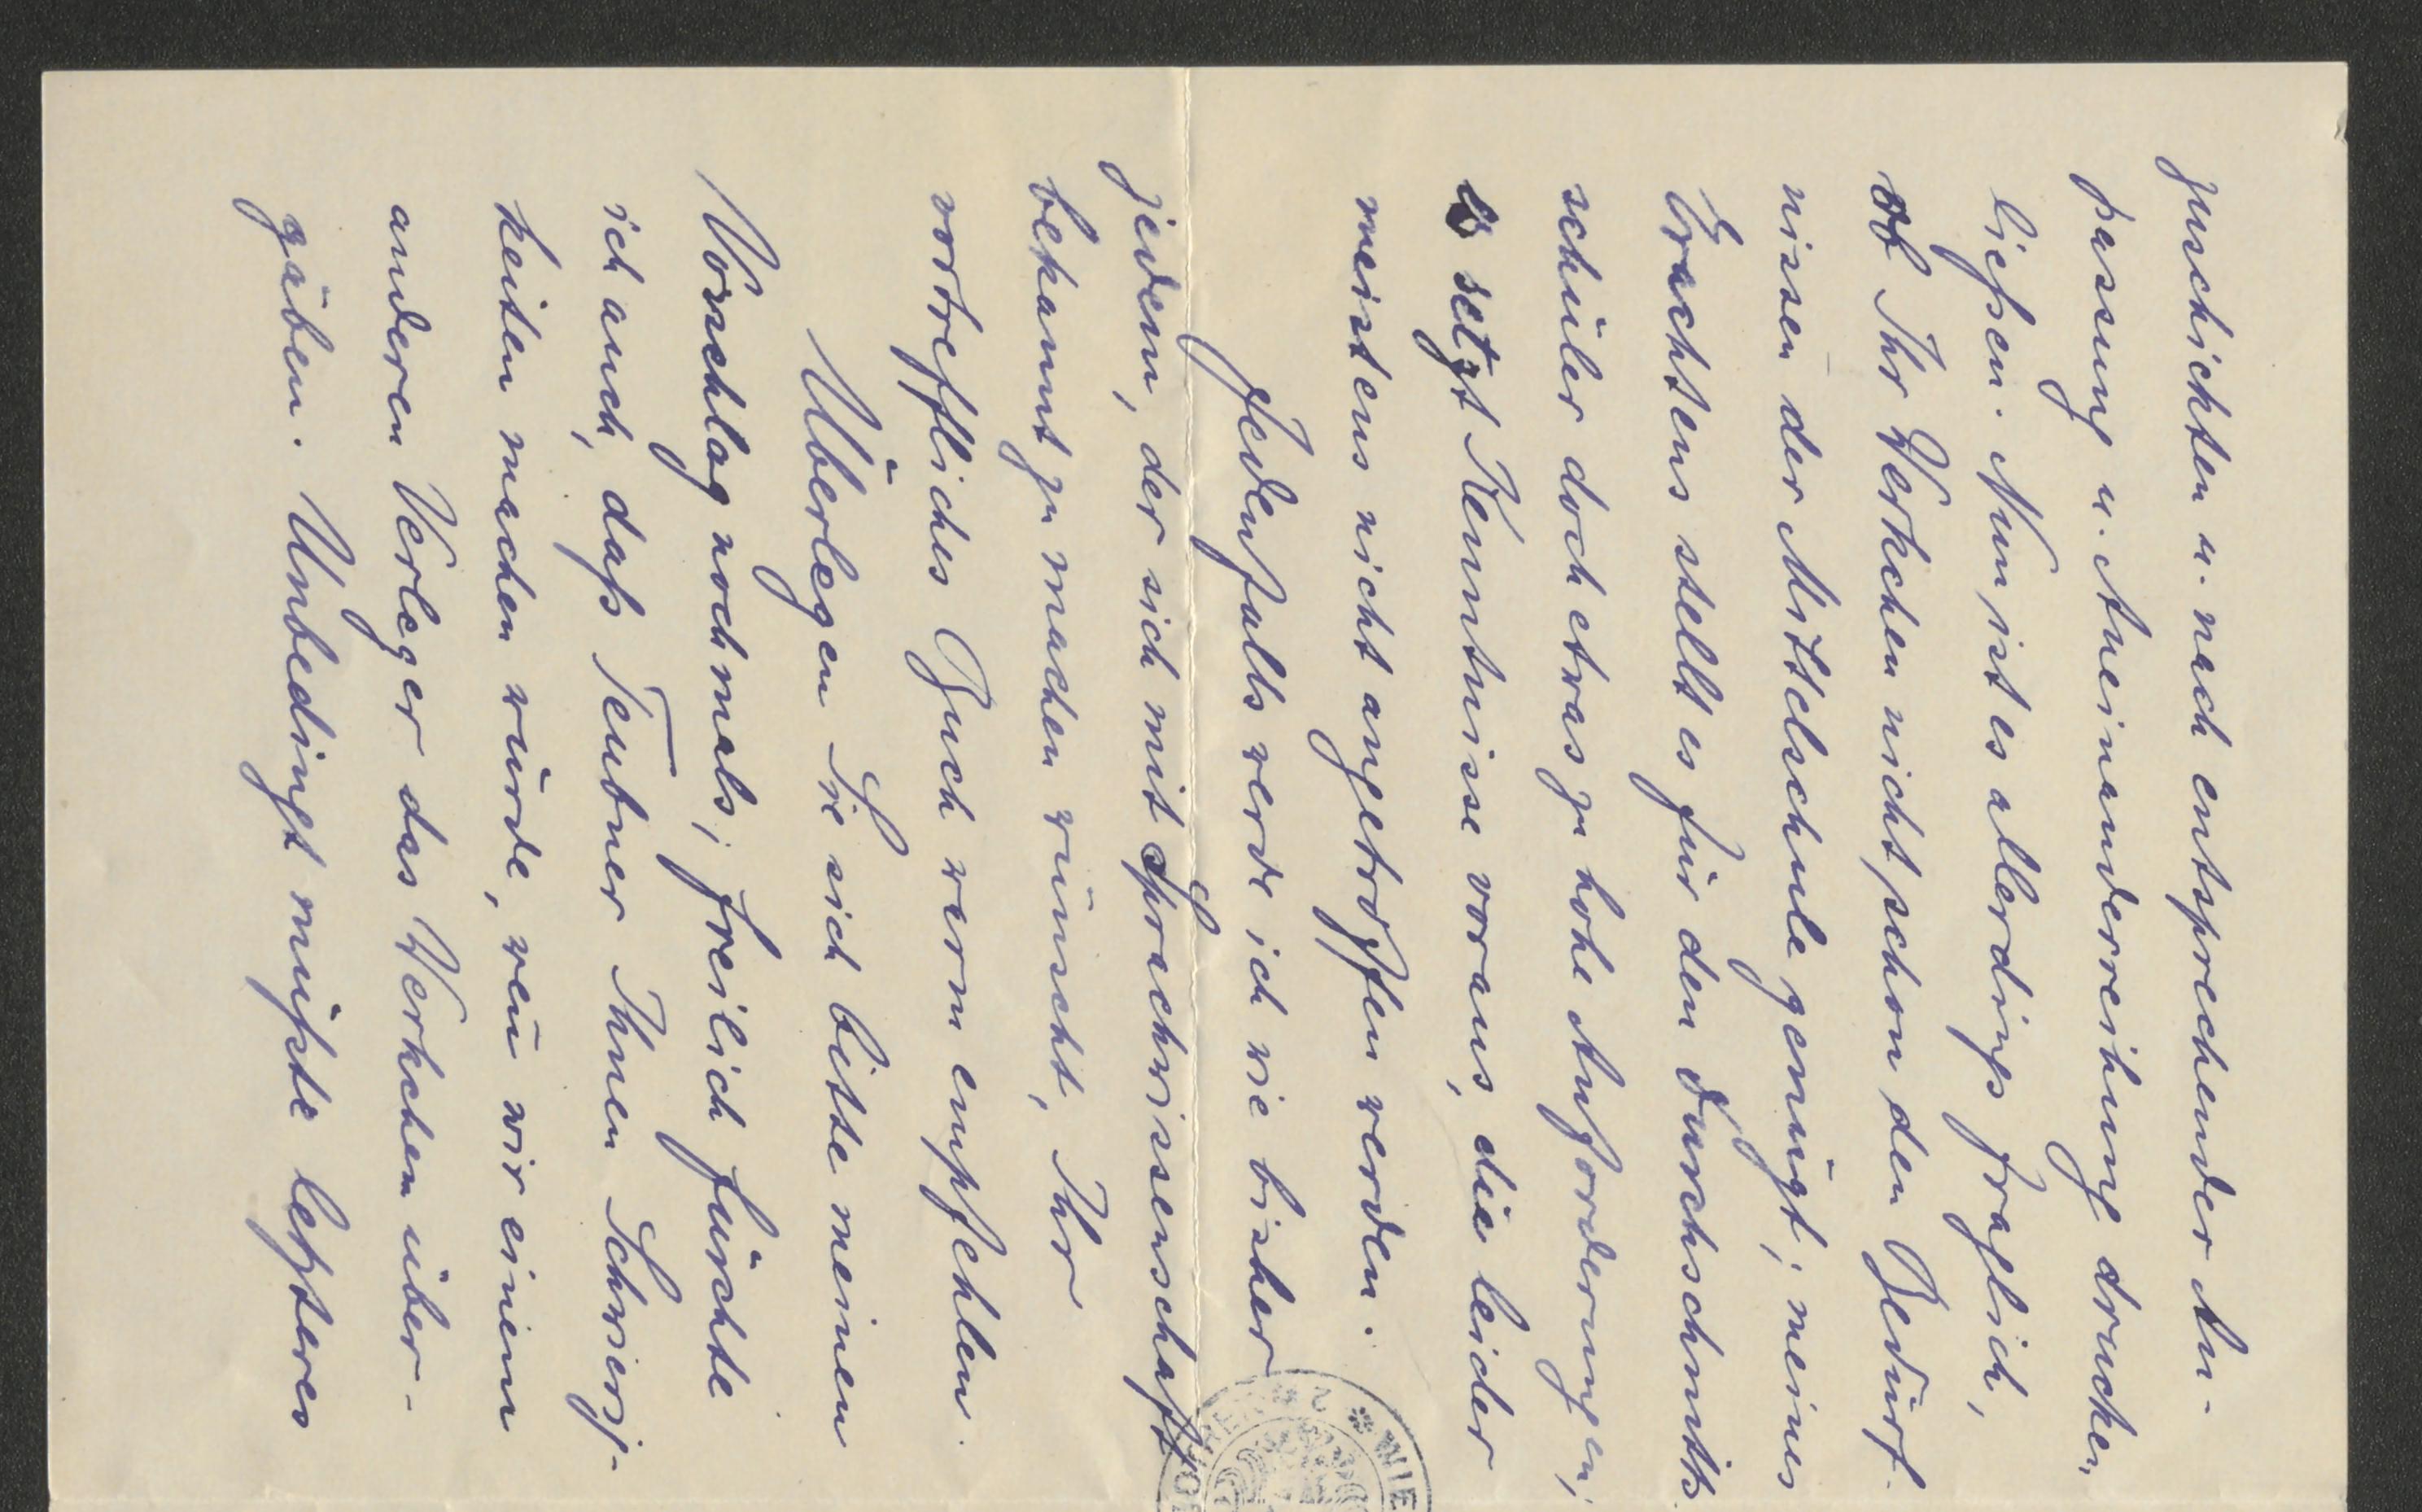 zuschickten u. nach entsprechender An-
passung u. Aneinanderreihung drucken
ließen. Nun ist es allerdings fraglich,
ob Ihr Werkchen nicht schon den Bedürf-
nissen der Mittelschule genügt; meines
Erachtens stellt es für den Durchschnitts-
schüler doch etwas zu hohe Anforderungen;
es setzt Kenntnisse voraus, die leider
meistens nicht angetroffen werden.
Jedenfalls werde ich wie bisher
jedem, der sich mit Sprachwissenschaft
bekannt zu machen wünscht, Ihr
vortreffliches Buch warm empfehlen.
Überlegen Sie sich bitte meinen
Vorschlag nochmals; freilich fürchte
ich auch, daß Teubner Ihnen Schwierig-
keiten machen würde, wen̄ wir einem
anderen Verleger das Werkchen über-
gäben. Unbedingt müßte letzteres
WIE